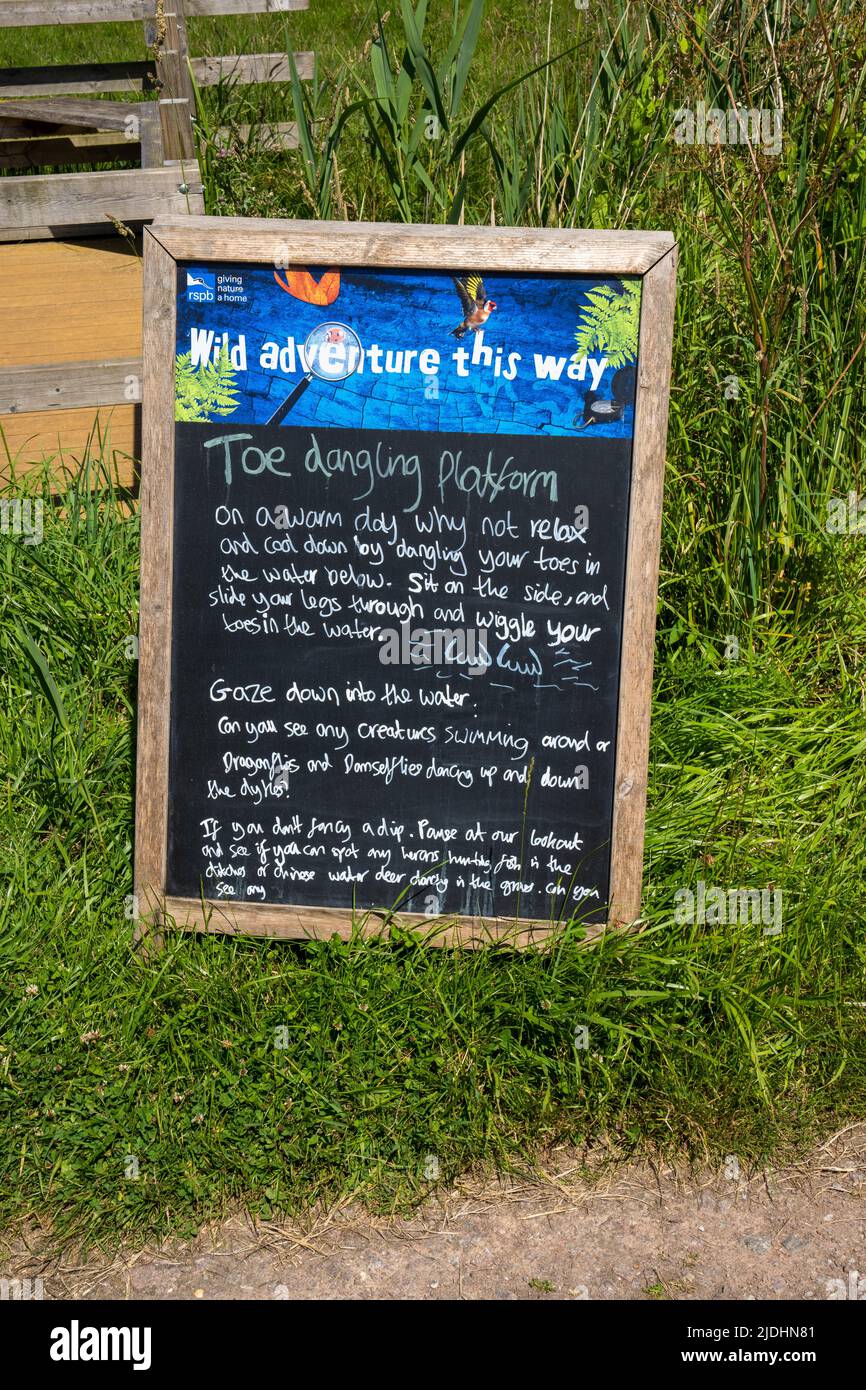 rspb
giving
nature
a home
Wild adventure this way
Toe dangling Platform
on a warm day why not relax
and cool down by dangling your toes in
the water below. Sit on the side, and
slide your legs through and wiggle your
toes in the water.
Gaze down into the water.
Can you see any creatures swimming around or
Dragonflies and Damselflies dancing up and down
the dykes?
If you don't fancy a dip. Pause at our lookout
and see if you can spot any herons hunting fish in the
ditches or chinese water deer dancing in the grass. Can you
see any
alamy
Image ID: 2JDHN81
www.alamy.com